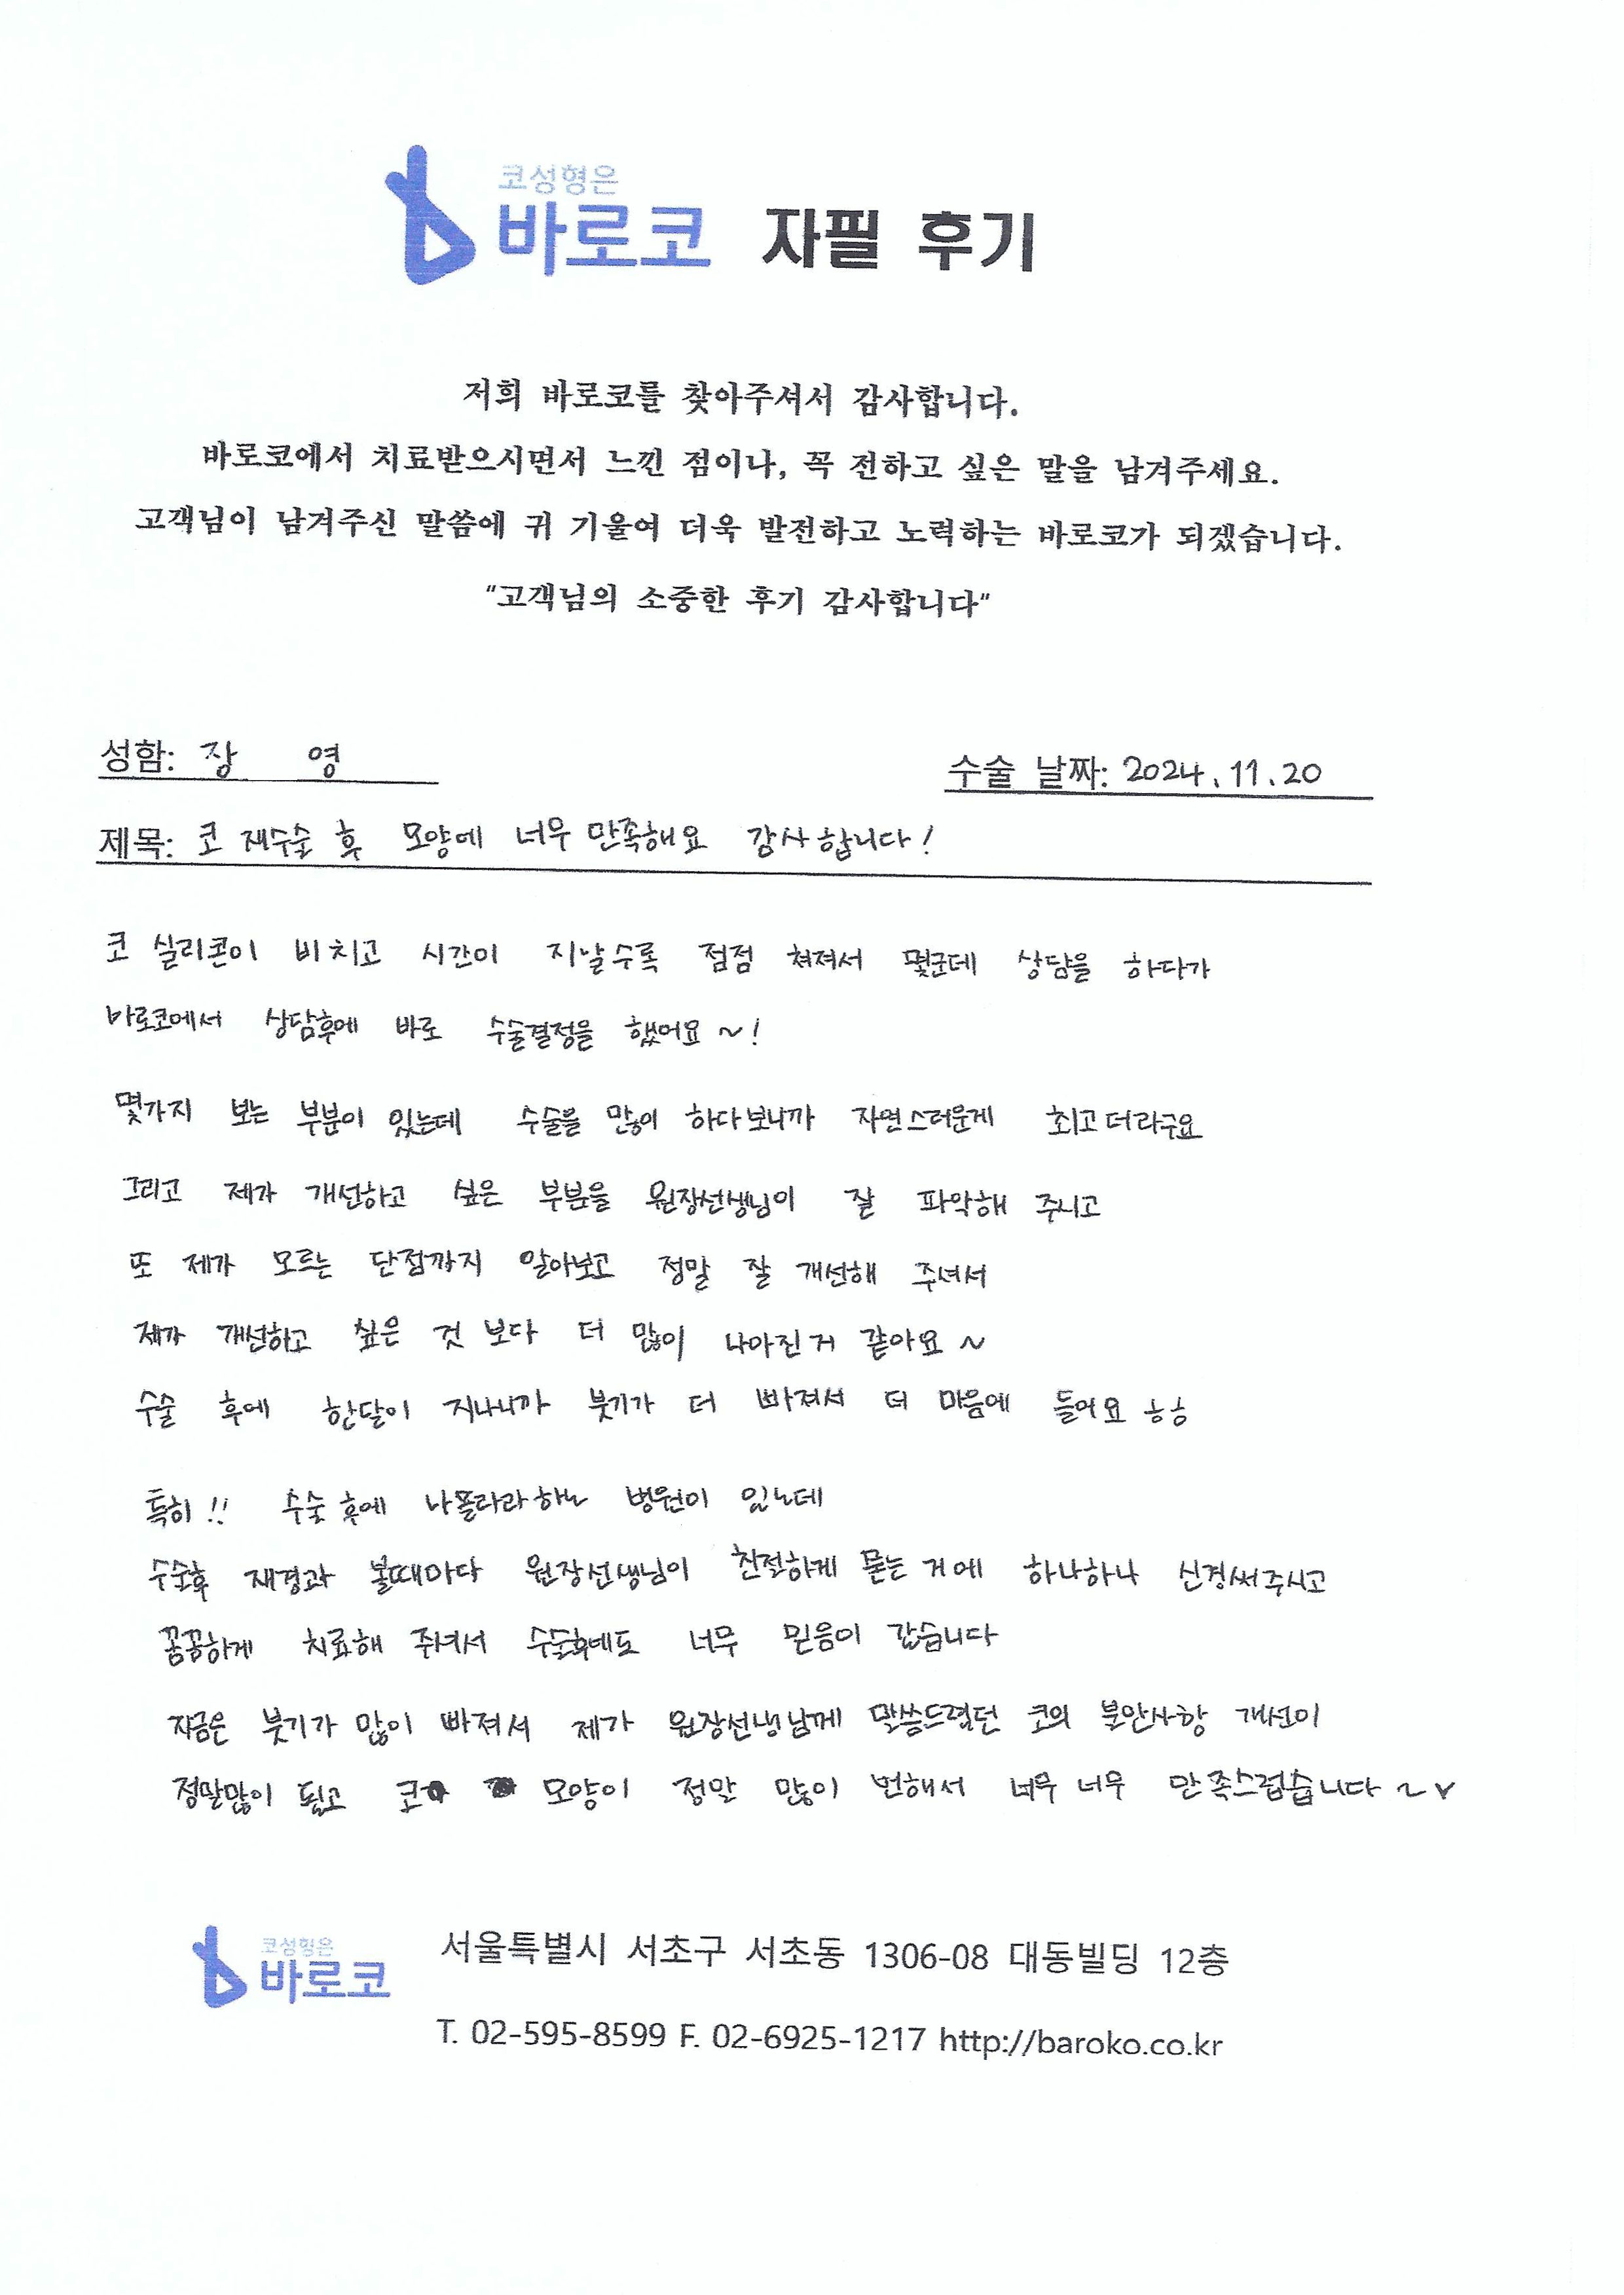 코성형은
바로코 자필 후기
저희 바로코를 찾아주셔서 감사합니다.
바로코에서 치료받으시면서 느낀 점이나, 꼭 전하고 싶은 말을 남겨주세요.
고객님이 남겨주신 말씀에 귀 기울여 더욱 발전하고 노력하는 바로코가 되겠습니다.
"고객님의 소중한 후기 감사합니다"
성함: 장 영
수술 날짜: 2024.11.20
제목: 코 재수술 후 모양에 너무 만족해요 감사합니다!
코 실리콘이 비치고 시간이 지날수록 점점 쳐져서 몇군데 상담을 하다가
바로코에서 상담후에 바로 수술결정을 했어요~!
몇가지 보는 부분이 있는데 수술을 많이 하다보니까 자연스러운게 최고더라구요
그리고 제가 개선하고 싶은 부분을 원장선생님이 잘 파악해 주시고
또 제가 모르는 단점까지 알아보고 정말 잘 개선해 주셔서
제가 개선하고 싶은 것 보다 더 많이 나아진거 같아요~
수술 후에 한달이 지나니까 붓기가 더 빠져서 더 마음에 들어요 ㅎㅎ
특히!! 수술 후에 나몰라라하는 병원이 있는데
수술후 재경과 볼때마다 원장선생님이 친절하게 묻는 거에 하나하나 신경써주시고
꼼꼼하게 치료해 주셔서 수술후에도 너무 믿음이 갔습니다
지금은 붓기가 많이 빠져서 제가 원장선생님께 말씀드렸던 코의 불안사항 개선이
정말많이 됐고 코 모양이 정말 많이 변해서 너무 너무 만족스럽습니다~♥
코성형은
바로코
서울특별시 서초구 서초동 1306-08 대동빌딩 12층
T. 02-595-8599 F. 02-6925-1217 http://baroko.co.kr